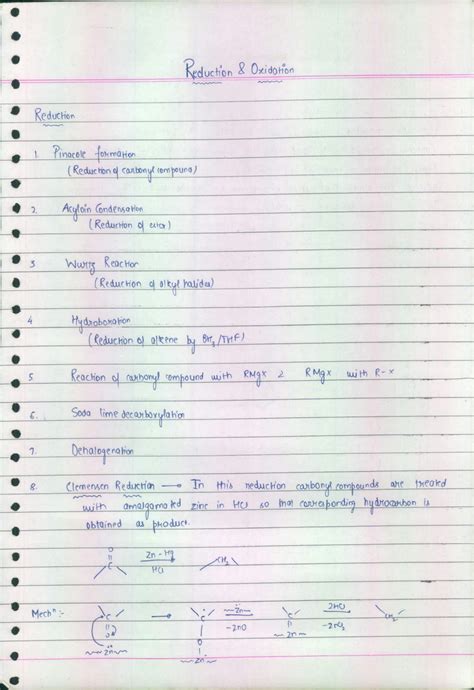 Reduction & Oxidation
Reduction
1. Pinacole formation
(Reduction of carbonyl compound)
2. Acyloin Condensation
(Reduction of ester)
3 Wurtz Reaction
(Reduction of alkyl halides)
4 Hydroboration
(Reduction of alkene by BH3/THF)
5. Reaction of carbonyl compound with RMgx & RMgx with R-x
6. Soda lime decarboxylation
7. Dehalogenation
8. Clemensen Reduction → In this reduction carbonyl compounds are treated
with amalgamated zinc in HCl so that corresponding hydrocarbon is
obtained as product.
O
C
Zn-Hg
HCl
CH2
Mechn :-
C
O
Zn
→
C
O
Zn
Zn
-ZnO
C
Zn
2HCl
-ZnCl2
CH2